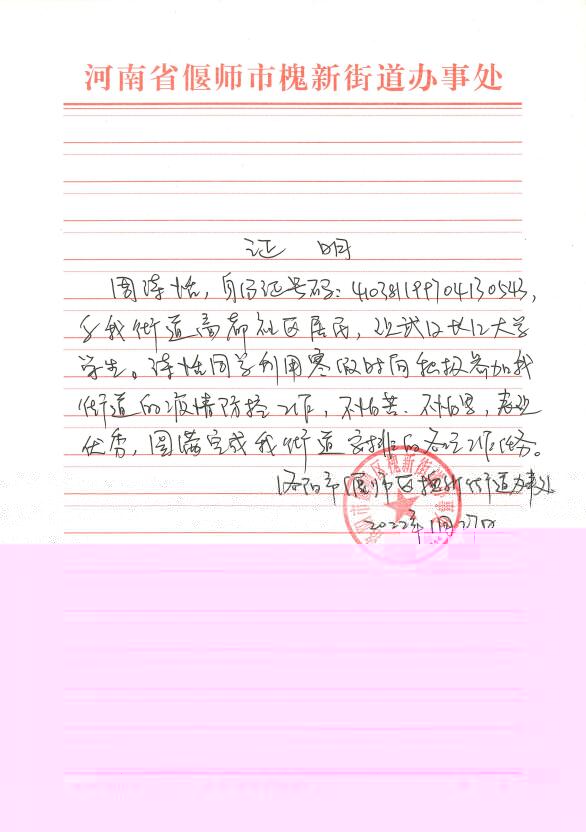 河南省偃师市槐新街道办事处
证 明
周涛恬，身份证号码：410381199704130543，
系我街道高都社区居民，现武汉长江大学
学生。涛恬同学利用寒假时间积极参加我
街道的疫情防控工作，不怕苦、不怕累，表现
优秀，圆满完成我街道安排的各项工作任务。
洛阳市偃师区槐新街道办事处
2022年1月27日